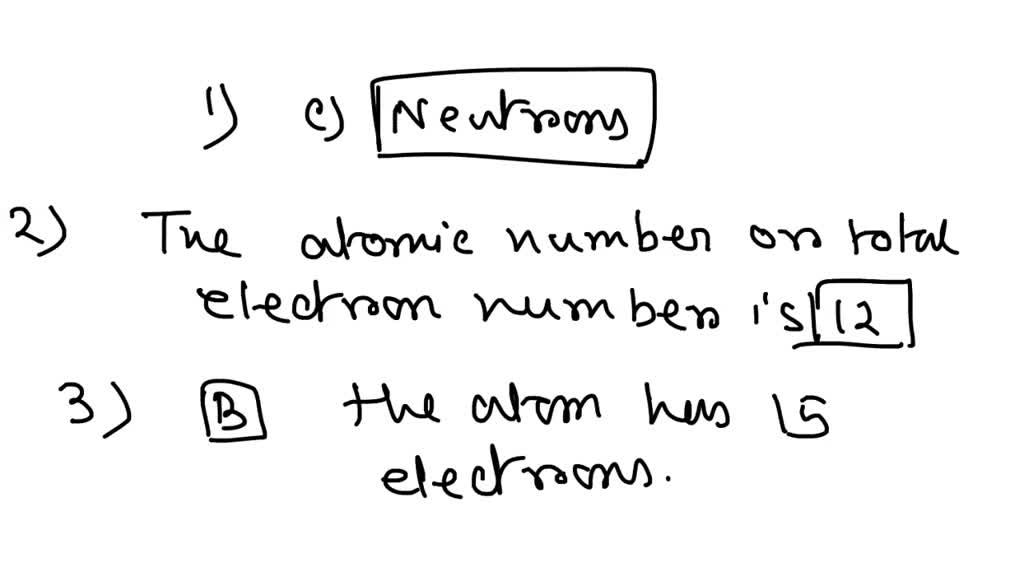 1) c) Neutrons
2) The atomic number or total
electron number is 12
3) B the atom has 15
electrons.